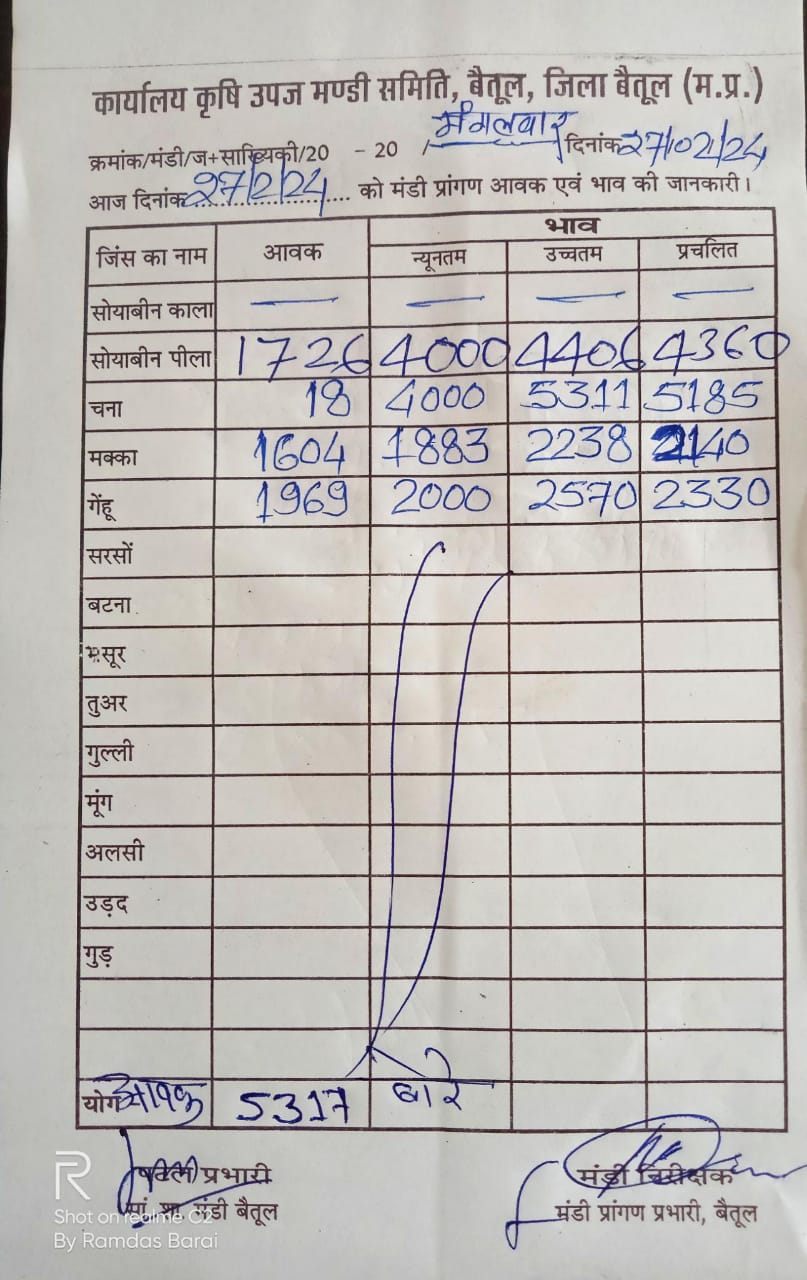 कार्यालय कृषि उपज मण्डी समिति, बैतूल, जिला बैतूल (म.प्र.)
क्रमांक/मंडी/ज+सांख्यिकी/20 - 20 / मंगलवार दिनांक 27/02/24
आज दिनांक 27/2/24 को मंडी प्रांगण आवक एवं भाव की जानकारी।
जिंस का नाम आवक भाव
न्यूनतम उच्चतम प्रचलित
सोयाबीन काला — — — —
सोयाबीन पीला 1726 4000 4406 4360
चना 18 4000 5311 5185
मक्का 1604 1883 2238 2140
गेंहू 1969 2000 2570 2330
सरसों
बटना
मसूर
तुअर
गुल्ली
मूंग
अलसी
उड़द
गुड़
योग आवक 5317 बोरे
प्रभारी मंडी निरीक्षक
मंडी बैतूल मंडी प्रांगण प्रभारी, बैतूल
Shot on realme C2
By Ramdas Barai